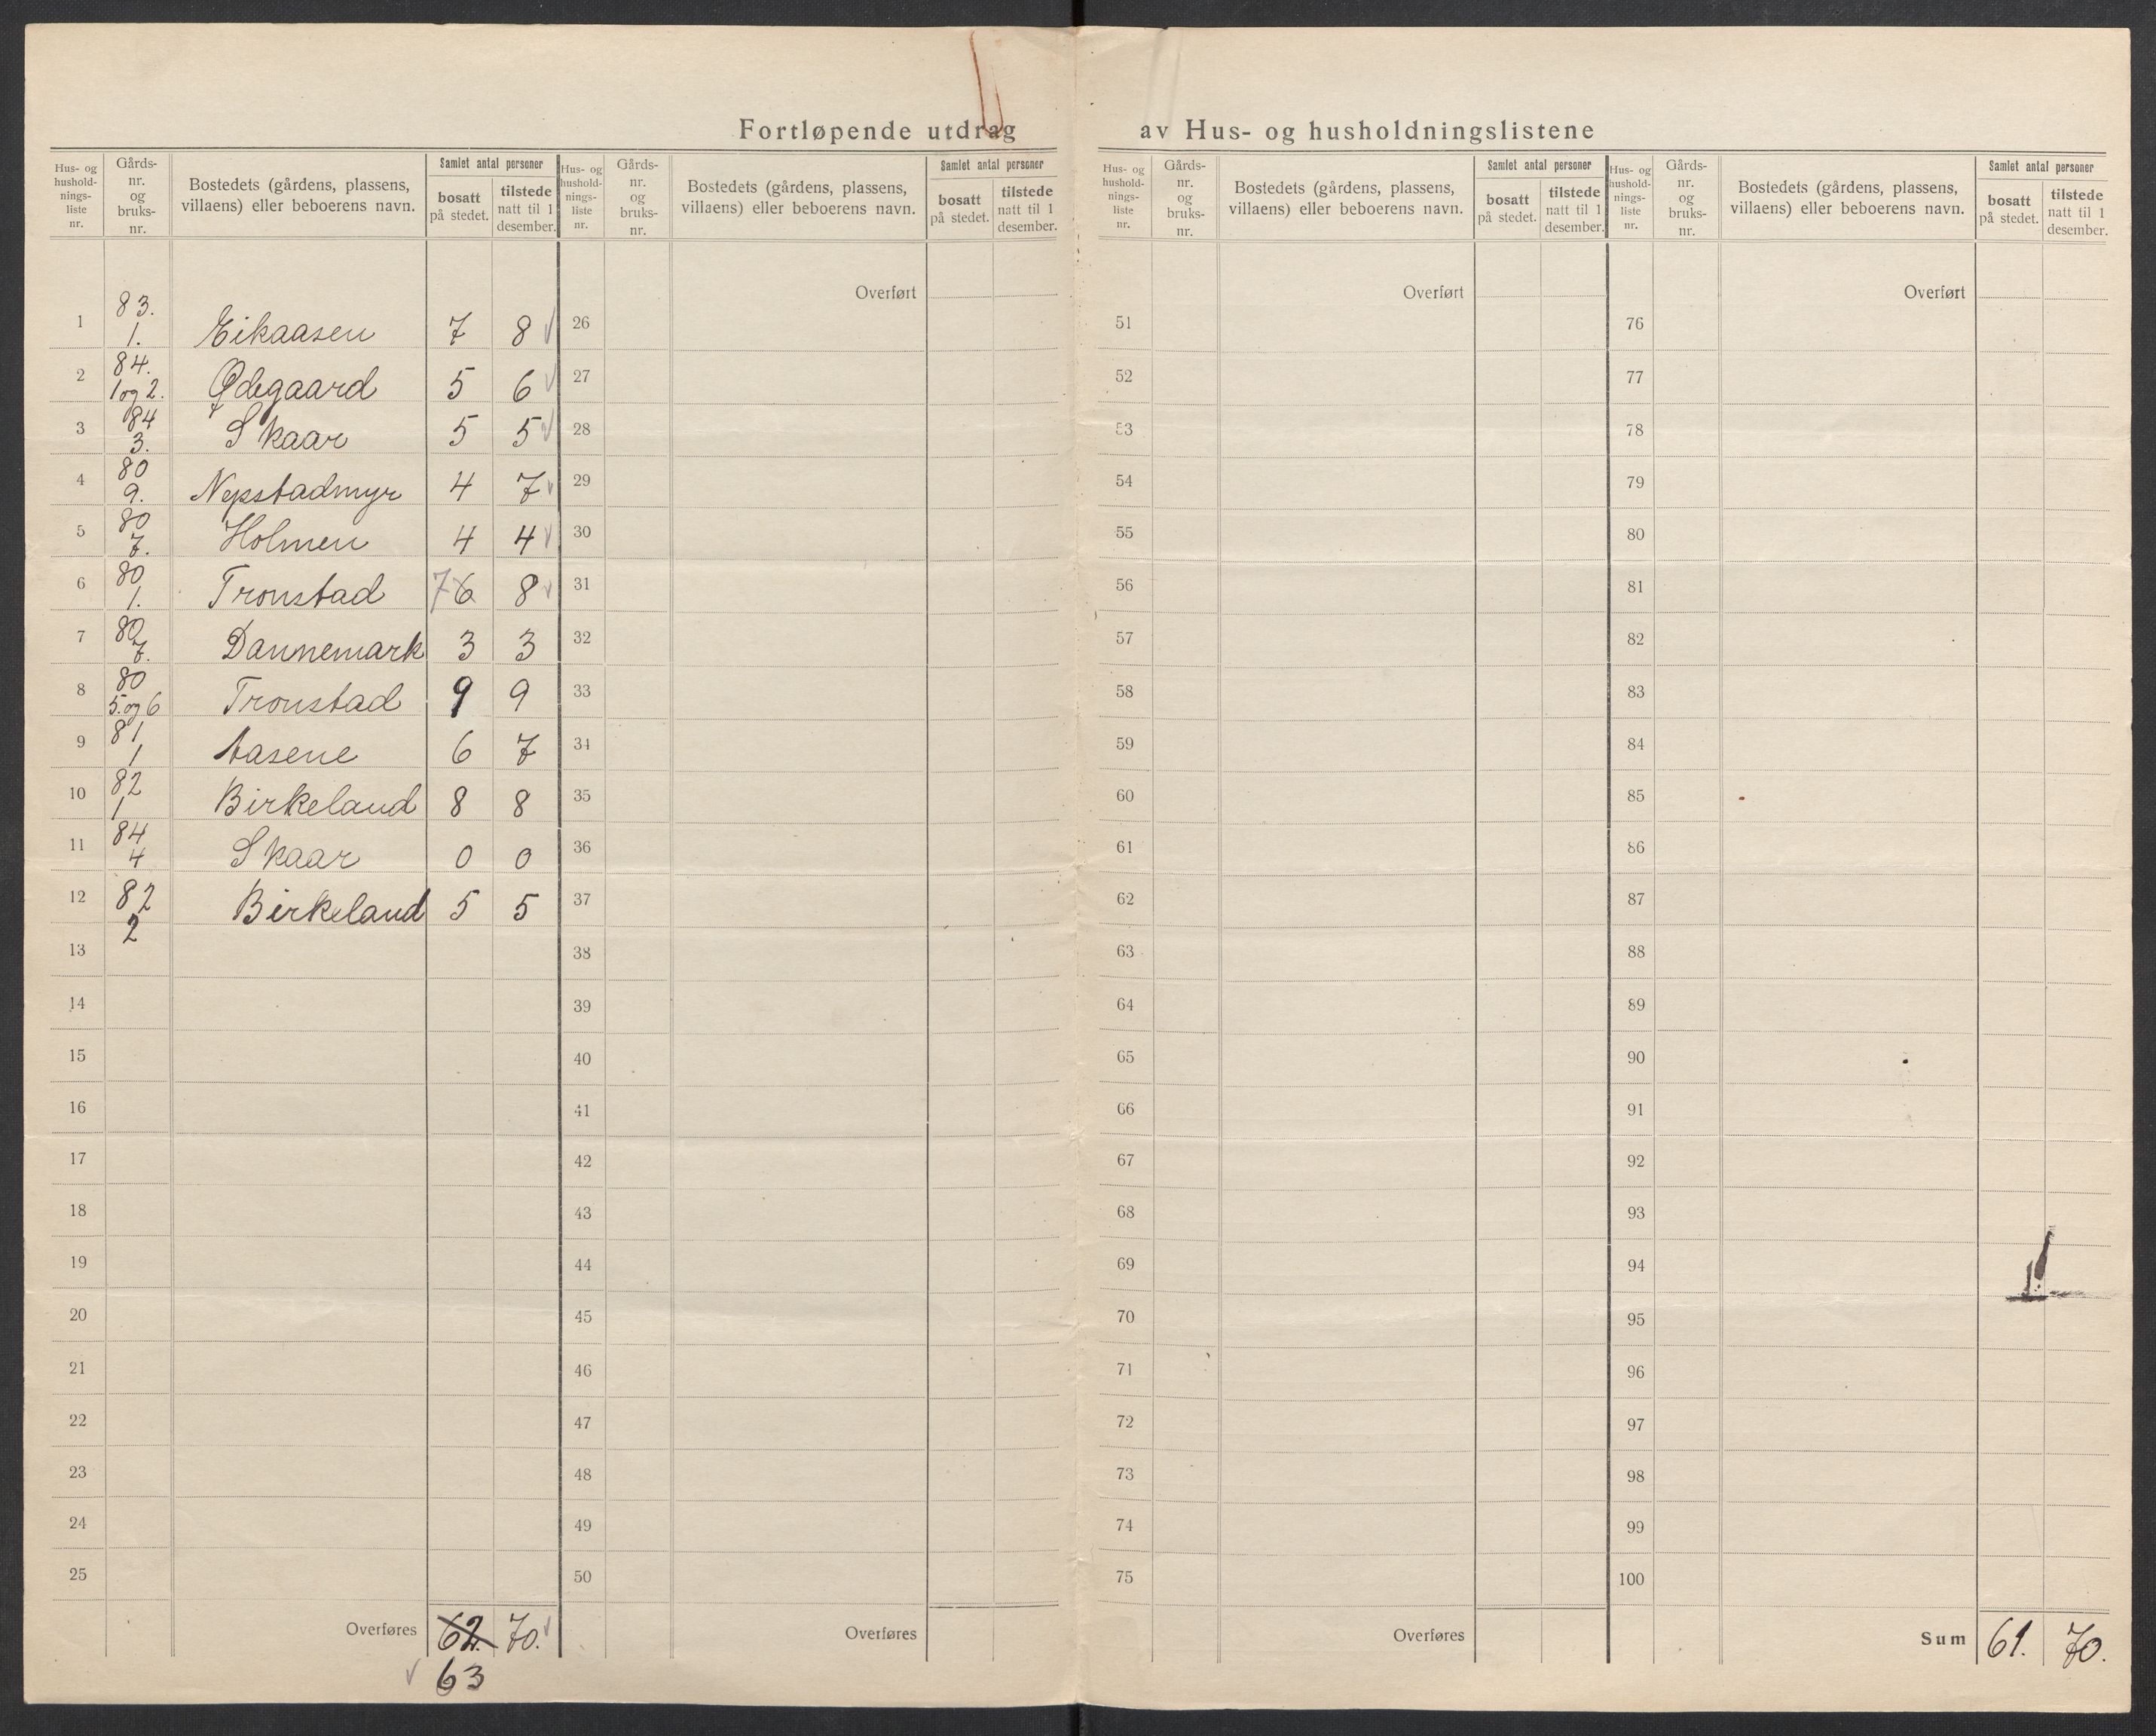 Fortløpende utdrag av Hus- og husholdningslistene
Hus- og hushold- nings- liste nr. | Gårds- nr. og bruks- nr. | Bostedets (gårdens, plassens, villaens) eller beboerens navn. | Samlet antal personer | bosatt på stedet. | tilstede natt til 1 desember.
Hus- og hushold- nings- liste nr. | Gårds- nr. og bruks- nr. | Bostedets (gårdens, plassens, villaens) eller beboerens navn. | Samlet antal personer | bosatt på stedet. | tilstede natt til 1 desember.
Hus- og hushold- nings- liste nr. | Gårds- nr. og bruks- nr. | Bostedets (gårdens, plassens, villaens) eller beboerens navn. | Samlet antal personer | bosatt på stedet. | tilstede natt til 1 desember.
Hus- og hushold- nings- liste nr. | Gårds- nr. og bruks- nr. | Bostedets (gårdens, plassens, villaens) eller beboerens navn. | Samlet antal personer | bosatt på stedet. | tilstede natt til 1 desember.
Overført Overført Overført
1 83. 1. Eikaasen 7 8 √ 26 51 76
2 84. 1 og 2. Ødegaard 5 6 √ 27 52 77
3 84 3. Skaar 5 5 √ 28 53 78
4 80 9. Nepstadmyr 4 7 √ 29 54 79
5 80 7. Holmen 4 4 √ 30 55 80
6 80 1. Tronstad 7 6 8 √ 31 56 81
7 80 7. Dannemark 3 3 32 57 82
8 80 5. og 6 Tronstad 9 9 33 58 83
9 81 1 Aasene 6 7 34 59 84
10 82 1 Birkeland 8 8 35 60 85
11 84 4 Skaar 0 0 36 61 86
12 82 2 Birkeland 5 5 37 62 87
13 38 63 88
14 39 64 89
15 40 65 90
16 41 66 91
17 42 67 92
18 43 68 93
19 44 69 94
20 45 70 95
21 46 71 96
22 47 72 97
23 48 73 98
24 49 74 99
25 50 75 100
Overføres 62. 70. √ Overføres Overføres Sum 61. 70.
√ 63